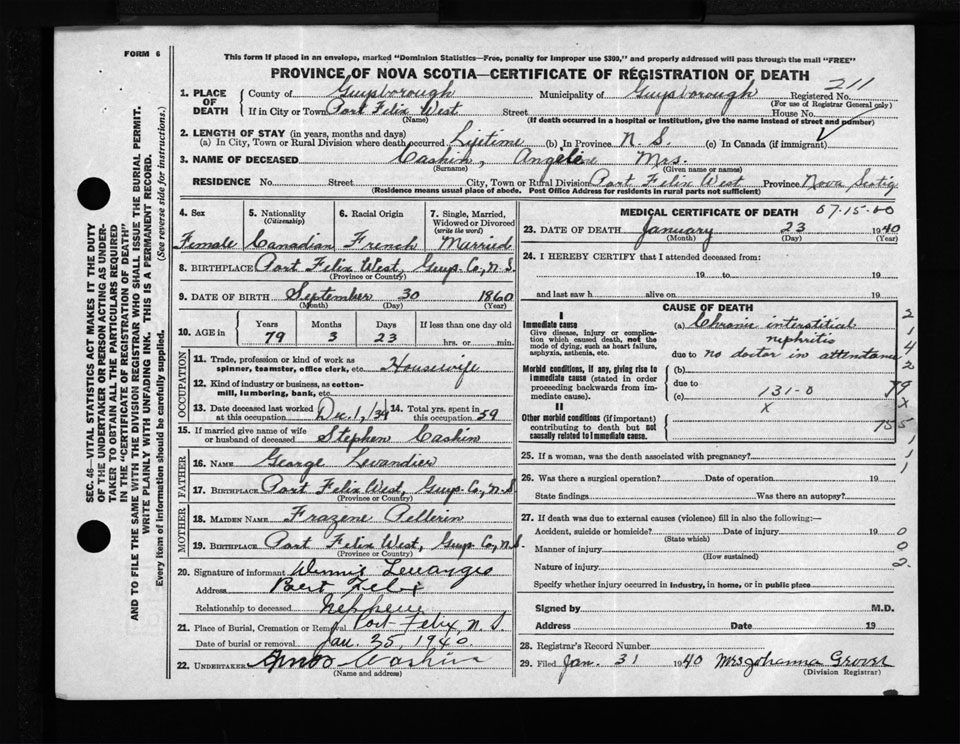 FORM 6
This form if placed in an envelope, marked "Dominion Statistics—Free, penalty for improper use $300," and properly addressed will pass through the mail "FREE"
PROVINCE OF NOVA SCOTIA—CERTIFICATE OF REGISTRATION OF DEATH
SEC. 46—VITAL STATISTICS ACT MAKES IT THE DUTY
OF THE UNDERTAKER OR PERSON ACTING AS UNDER-
TAKER TO OBTAIN ALL THE PARTICULARS REQUIRED
IN THE "CERTIFICATE OF REGISTRATION OF DEATH"
AND TO FILE THE SAME WITH THE DIVISION REGISTRAR WHO SHALL ISSUE THE BURIAL PERMIT.
WRITE PLAINLY WITH UNFADING INK. THIS IS A PERMANENT RECORD.
Every item of information should be carefully supplied. (See reverse side for instructions.)
1. PLACE OF DEATH County of Guysborough Municipality of Guysborough Registered No. 211
(For use of Registrar General only)
If in City or Town Port Felix West Street House No.
(Name) (If death occurred in a hospital or institution, give the name instead of street and number)
2. LENGTH OF STAY (in years, months and days)
(a) In City, Town or Rural Division where death occurred Lifetime (b) In Province N. S. (c) In Canada (if immigrant)
3. NAME OF DECEASED Cashin, Angèline Mrs.
(Surname) (Given name or names)
RESIDENCE No. Street City, Town or Rural Division Port Felix West Province Nova Scotia
(Residence means usual place of abode. Post Office Address for residents in rural parts not sufficient)
4. Sex 5. Nationality (Citizenship) 6. Racial Origin 7. Single, Married, Widowed or Divorced (write the word)
Female Canadian French Married
8. BIRTHPLACE Port Felix West, Guys. Co, N. S.
(Province or Country)
9. DATE OF BIRTH September 30 1860
(Month) (Day) (Year)
10. AGE in Years Months Days If less than one day old
79 3 23 hrs. or min.
OCCUPATION
11. Trade, profession or kind of work as
spinner, teamster, office clerk, etc. Housewife
12. Kind of industry or business, as cotton-
mill, lumbering, bank, etc.
13. Date deceased last worked at this occupation Dec. 1, /39 14. Total yrs. spent in this occupation 59
15. If married give name of wife
or husband of deceased Stephen Cashin
FATHER
16. NAME George Levandier
17. BIRTHPLACE Port Felix West, Guys. Co, N. S
(Province or Country)
MOTHER
18. MAIDEN NAME Frazene Pellerin
19. BIRTHPLACE Port Felix West, Guys. Co, N.S.
(Province or Country)
20. Signature of informant
Address Port Felix
Relationship to deceased Nephew
21. Place of Burial, Cremation or Removal Port Felix N. S.
Date of burial or removal Jan. 25, 1940
22. UNDERTAKER Amos Cashin
(Name and address)
MEDICAL CERTIFICATE OF DEATH 67-15-60
23. DATE OF DEATH January 23 1940
(Month) (Day) (Year)
24. I HEREBY CERTIFY that I attended deceased from:
19 to 19
and last saw h alive on 19
CAUSE OF DEATH
I
Immediate cause
Give disease, injury or complica-
tion which caused death, not the
mode of dying, such as heart failure,
asphyxia, asthenia, etc.
(a) Chronic interstitial
nephritis
due to no doctor in attendance
Morbid conditions, if any, giving rise to
immediate cause (stated in order
proceeding backwards from im-
mediate cause).
(b)
due to
(c) 131-0
x
II
Other morbid conditions (if important)
contributing to death but not
causally related to immediate cause.
2
1
4
2
79
x
755
1
1
25. If a woman, was the death associated with pregnancy?
26. Was there a surgical operation? Date of operation 19
State findings Was there an autopsy?
27. If death was due to external causes (violence) fill in also the following:—
Accident, suicide or homicide? Date of injury 19 0
(State which)
Manner of injury 0
(How sustained)
Nature of injury 2
Specify whether injury occurred in industry, in home, or in public place
Signed by M.D.
Address Date 19
28. Registrar's Record Number
29. Filed Jan. 31 1940 Mrs Johanna Grover
(Division Registrar)